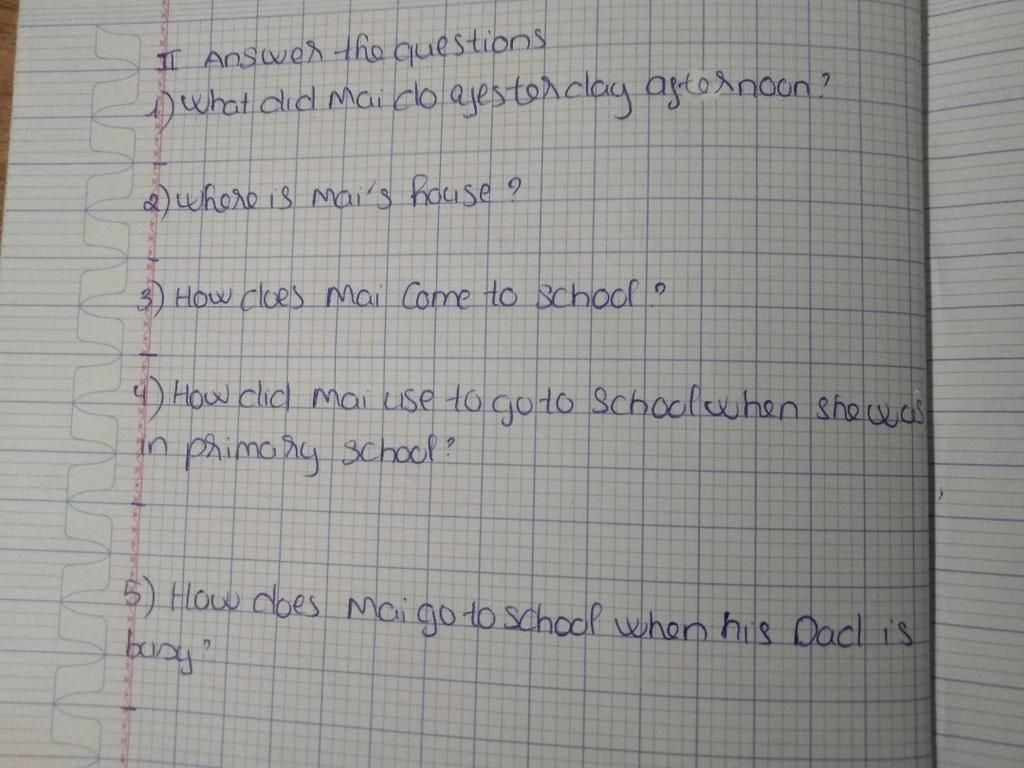 II Answer the questions
1) What did Mai do ayesterday afternoon?
2) Where is Mai's house?
3) How does Mai Come to school?
4) How did Mai use to go to School when she was
in primary school?
5) How does Mai go to school when his Dad is
busy?